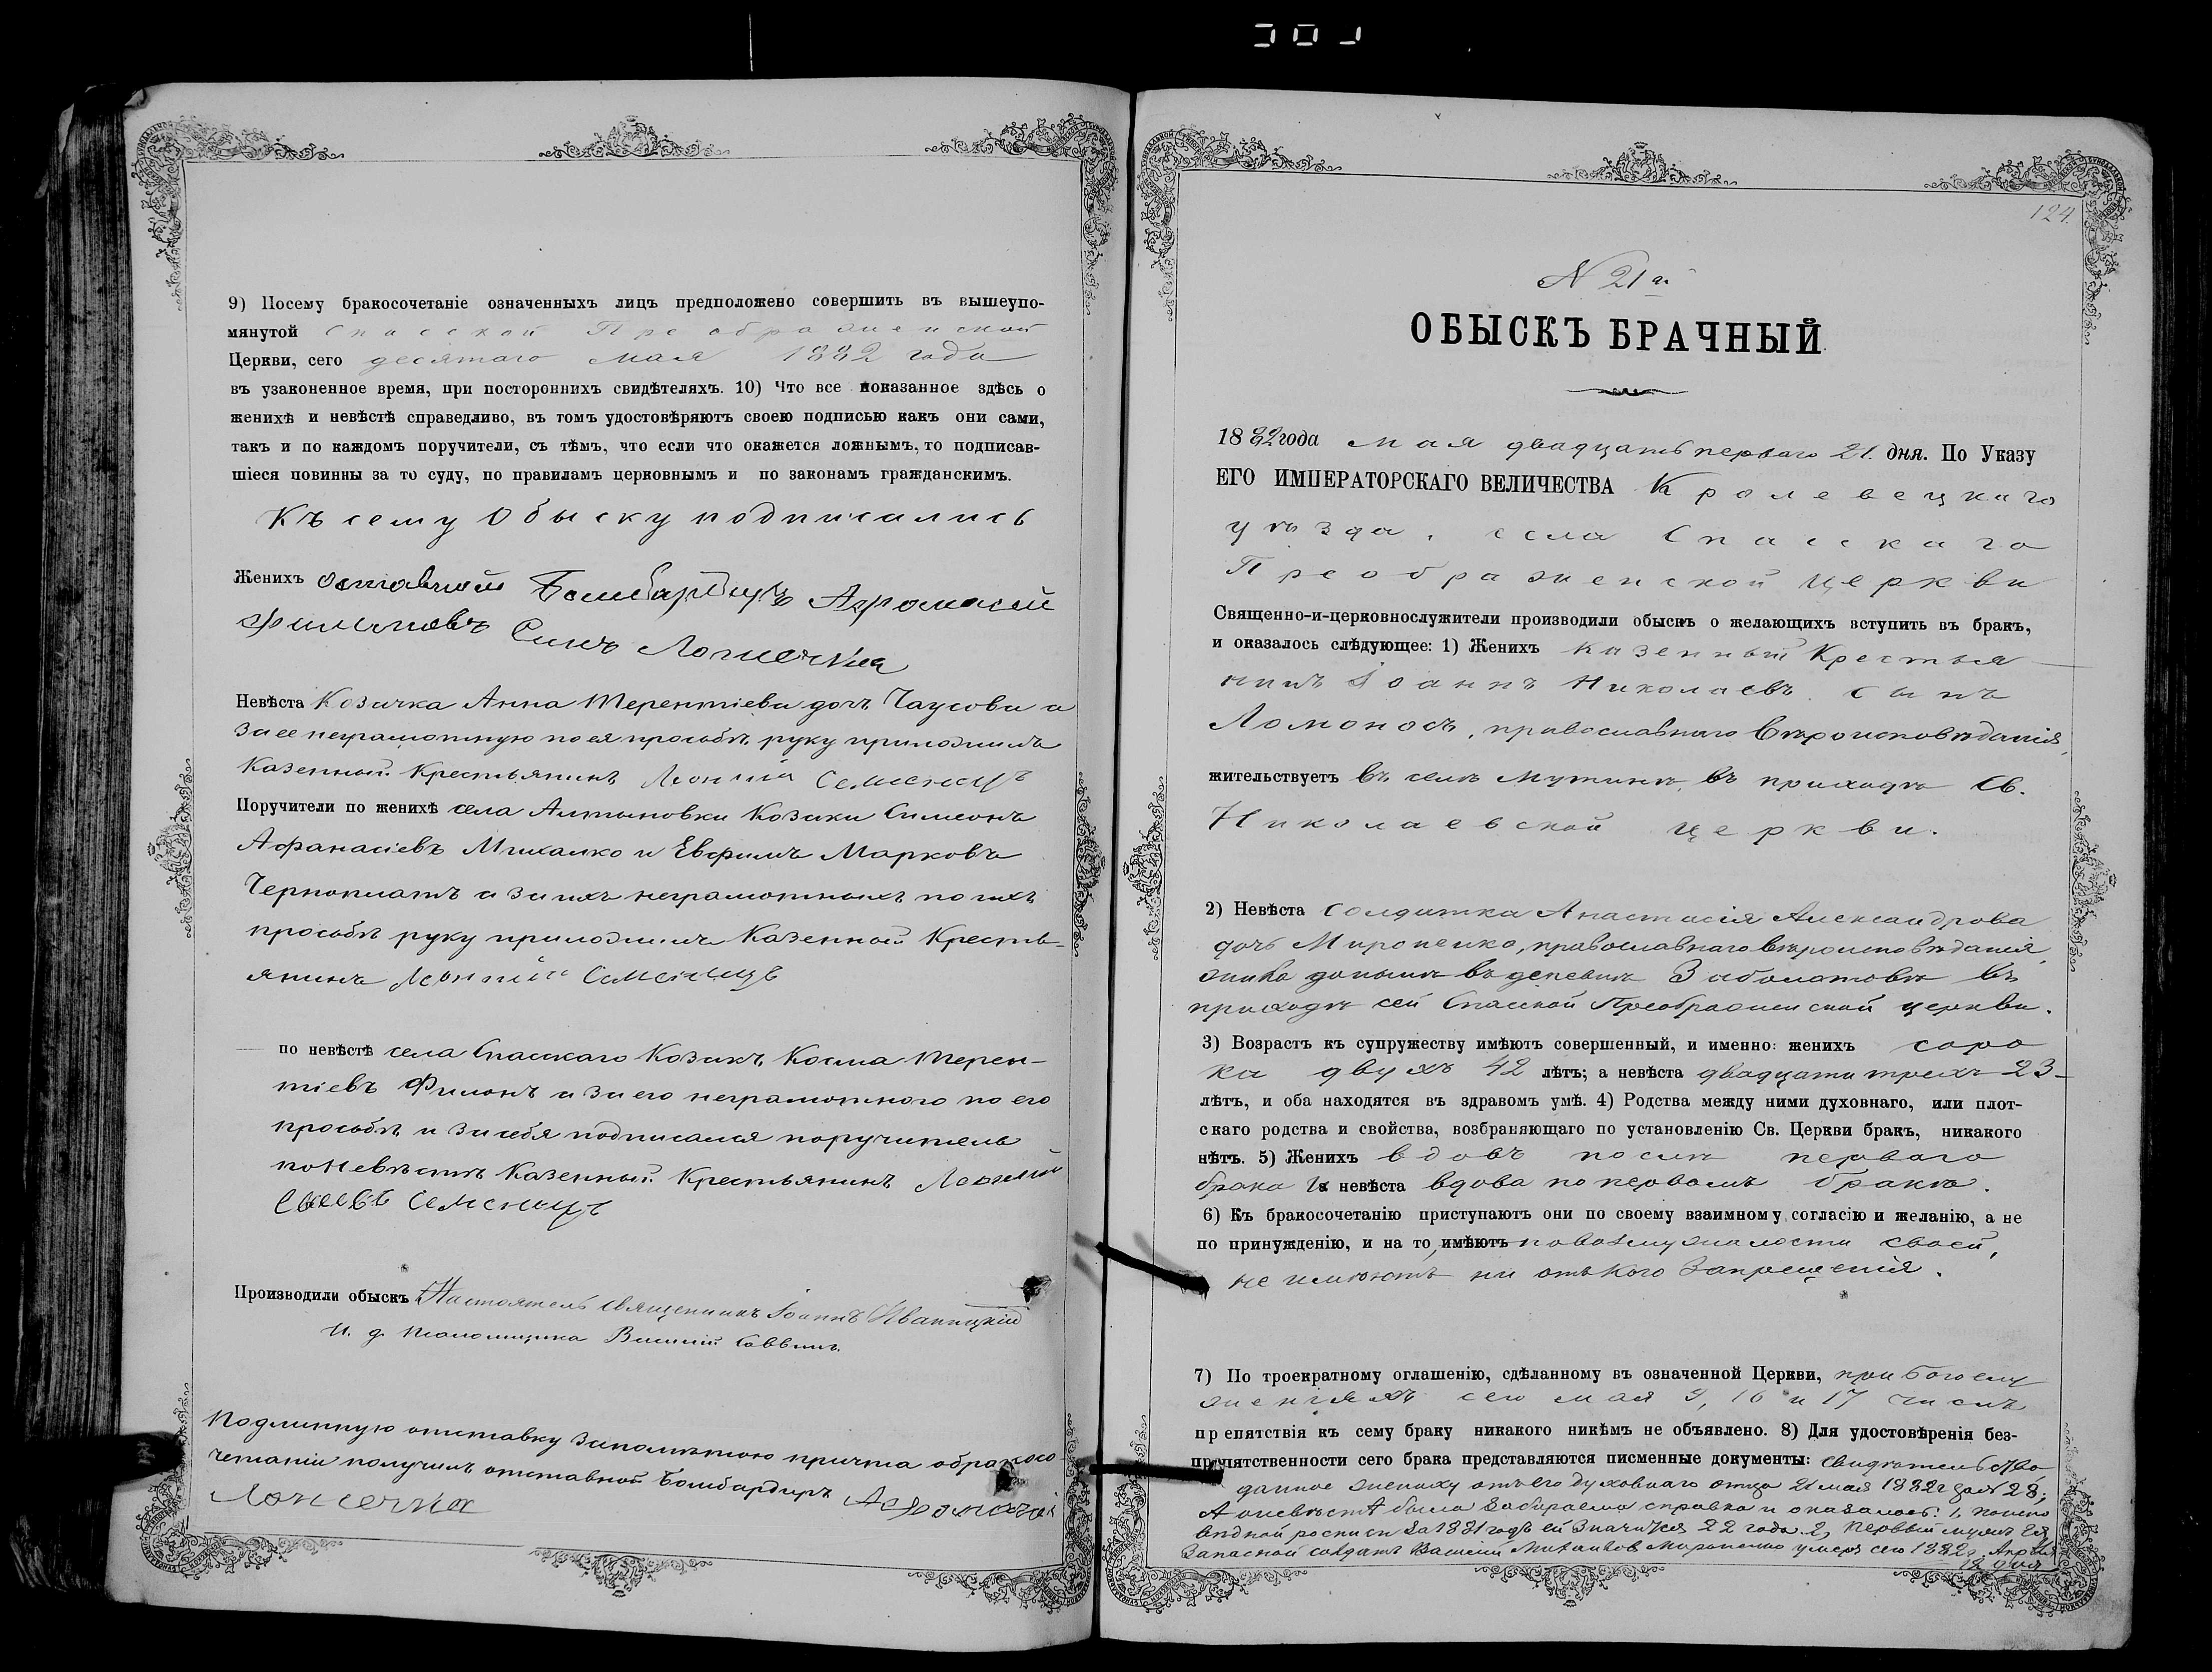 9) Посему бракосочетаніе означенныхъ лицъ предположено совершить въ вышеупо-
мянутой Спасской Преображенской
Церкви, сего десятаго мая 1882 года
въ узаконенное время, при постороннихъ свидѣтеляхъ. 10) Что все показанное здѣсь о
женихѣ и невѣстѣ справедливо, въ томъ удостовѣряютъ своею подписью какъ они сами,
такъ и по каждомъ поручители, съ тѣмъ, что если что окажется ложнымъ, то подписав-
шіеся повинны за то суду, по правиламъ церковнымъ и по законамъ гражданскимъ.
Къ сему Обыску подписались
Женихъ Бомбардиръ
Синъ
Невѣста Козачка Анна Терентіева дочь Чаусова а
за ее неграмотную по ея прозьбѣ руку приложилъ
Казенный Крестьянинъ
Поручители по женихѣ села Алтыновки Козаки Симеонъ
Афанасіевъ Михалко и Евфимъ Марковъ
а за ихъ неграмотныхъ по ихъ
прозьбѣ руку приложилъ Казенной Кресть-
янинъ
по невѣстѣ села Спаскаго Козакъ Косма Терен-
тіевъ Филонъ а за его неграмотного по его
прозьбѣ и за себя подписался поручитель
по Невѣстѣ Казенный Крестьянинъ
Производили обыскъ Настоятель священникъ Іоаннъ Иваницкій
И. д. псаломщика Василій Саввичъ
Подлинную отставку за помѣткою причта о бракосо-
четаніи получилъ отставной Бомбардиръ
124.
N 21й
ОБЫСКЪ БРАЧНЫЙ
1882 года мая двадцать перваго 21. дня. По Указу
ЕГО ИМПЕРАТОРСКАГО ВЕЛИЧЕСТВА Кролевецкаго
уѣзда, села Спасскаго
Преображенской церкви
Священно-и-церковнослужители производили обыскъ о желающихъ вступить въ бракъ,
и оказалось слѣдующее: 1) Женихъ казенный Крестья
нинъ Іоаннъ Николаевъ сынъ
Ломоносъ, православнаго вѣроисповѣданія,
жительствуетъ въ селѣ Мутинѣ, въ приходѣ Св.
Николаевской церкви.
2) Невѣста солдатка Анастасія Александрова
дочь Мироненко, православнаго вѣроисповѣданія,
жила донынѣ въ деревнѣ Заболотовѣ въ
приходѣ сей Спасской Преображенской церкви.
3) Возрастъ къ супружеству имѣютъ совершенный, и именно: женихъ соро
ка двухъ 42 лѣтъ; а невѣста двадцати трехъ 23
лѣтъ, и оба находятся въ здравомъ умѣ. 4) Родства между ними духовнаго, или плот-
скаго родства и свойства, возбраняющаго по установленію Св. Церкви бракъ, никакого
нѣтъ. 5) Женихъ вдовъ послѣ перваго
брака а невѣста вдова по первомъ бракѣ.
6) Къ бракосочетанію приступаютъ они по своему взаимному согласію и желанію, а не
по принужденію, и на то, имѣютъ по возмужалости своей,
не имѣютъ ни отъ кого запрещенія.
7) По троекратному оглашенію, сдѣланному въ означенной Церкви, при богослу
женіяхъ сего мая 9, 16 и 17 числъ
препятствія къ сему браку никакого никѣмъ не объявлено. 8) Для удостовѣренія без-
препятственности сего брака представляются писменные документы: свидѣтельство
данное жениху отъ его духовнаго отца 21 мая 1882 года № 28;
А о невѣстѣ была забираема справка и оказалось: 1, по испо
вѣдной росписи за 1881 годъ ей значится 22 года 2, Первый мужъ Ея
Запасной солдатъ Василій Михаиловъ Мироненко умеръ сего 1882 г. Апрѣля
18 дня